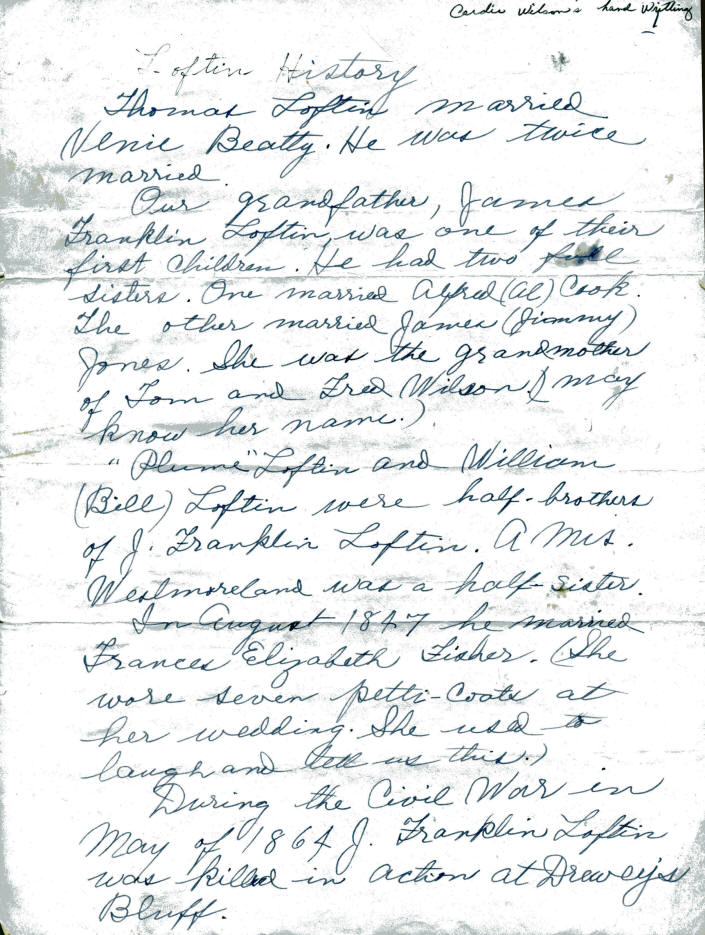 Cardie Wilson's hand Wrtting
Loftin History
Thomas Loftin married
Venie Beatty. He was twice
married.
Our grandfather, James
Franklin Loftin, was one of their
first children. He had two full
sisters. One married Alfred (Al) Cook.
The other married James (Jimmy)
Jones. She was the grandmother
of Tom and Fred Wilson. (may
know her name.)
"Plume" Loftin and William
(Bill) Loftin were half-brothers
of J. Franklin Loftin. A Mrs.
Westmoreland was a half-sister.
In August 1847 he married
Frances Elizabeth Fisher. (She
wore seven petti-coats at
her wedding. She used to
laugh and tell us this.)
During the Civil War in
May of 1864 J. Franklin Loftin
was killed in action at Drewey's
Bluff.